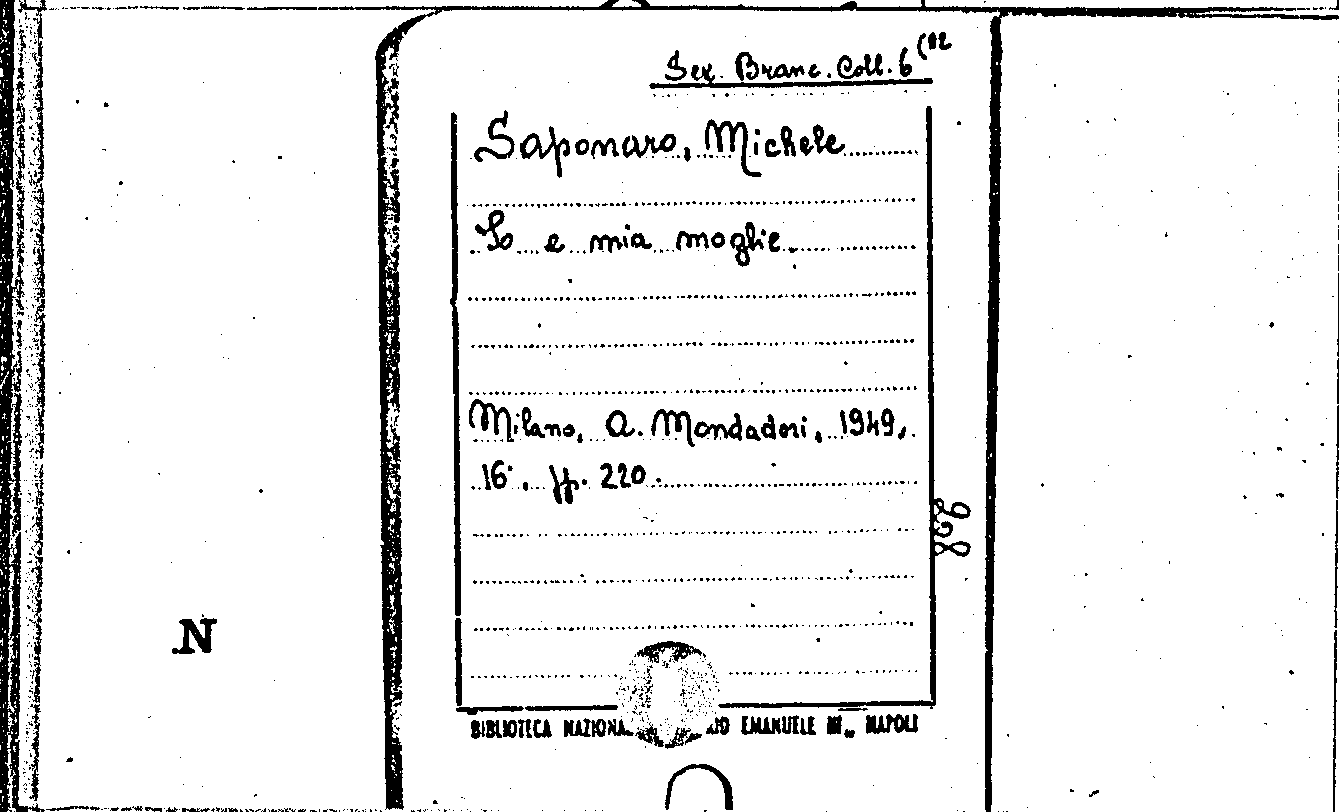 Sez. Branc. Coll. 6 (112
Saponaro, Michele
Io e mia moglie.
Milano, A. Mondadori, 1949,
16°, pp. 220.
N
BIBLIOTECA EMANUELE III„ NAPOLI